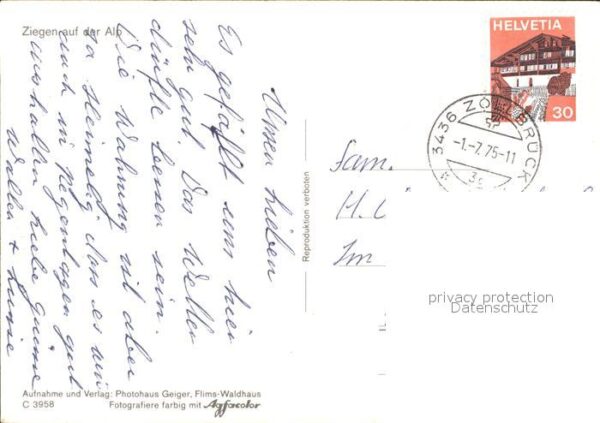 Ziegen auf der Alp
Unsern lieben
Es gefällt uns hier
sehr gut. Das Wetter
dürfte besser sein.
Die Wohnung ist aber
so heimelig, dass es uns
auch in Regentagen gut
liebe Grüsse
Walter +
Reproduktion verboten
Aufnahme und Verlag: Photohaus Geiger, Flims-Waldhaus
C 3958
Fotografiere farbig mit Agfacolor
HELVETIA
30
3436 ZOLLBRÜCK
-1.-7.75-11
Fam.
H.
Im
privacy protection
Datenschutz